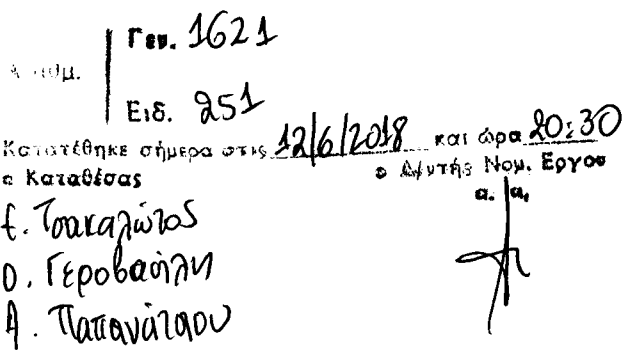 Γεν. 1621
Αριθμ.
Ειδ. 251
Κατατέθηκε σήμερα στις 12/6/2018 και ώρα 20:30
ο Καταθέσας
ο Δ/ντής Νομ. Εργου
α. α.
Ε. Τσακαλώτος
Ο. Γεροβασίλη
Α. Παπανάτσιου